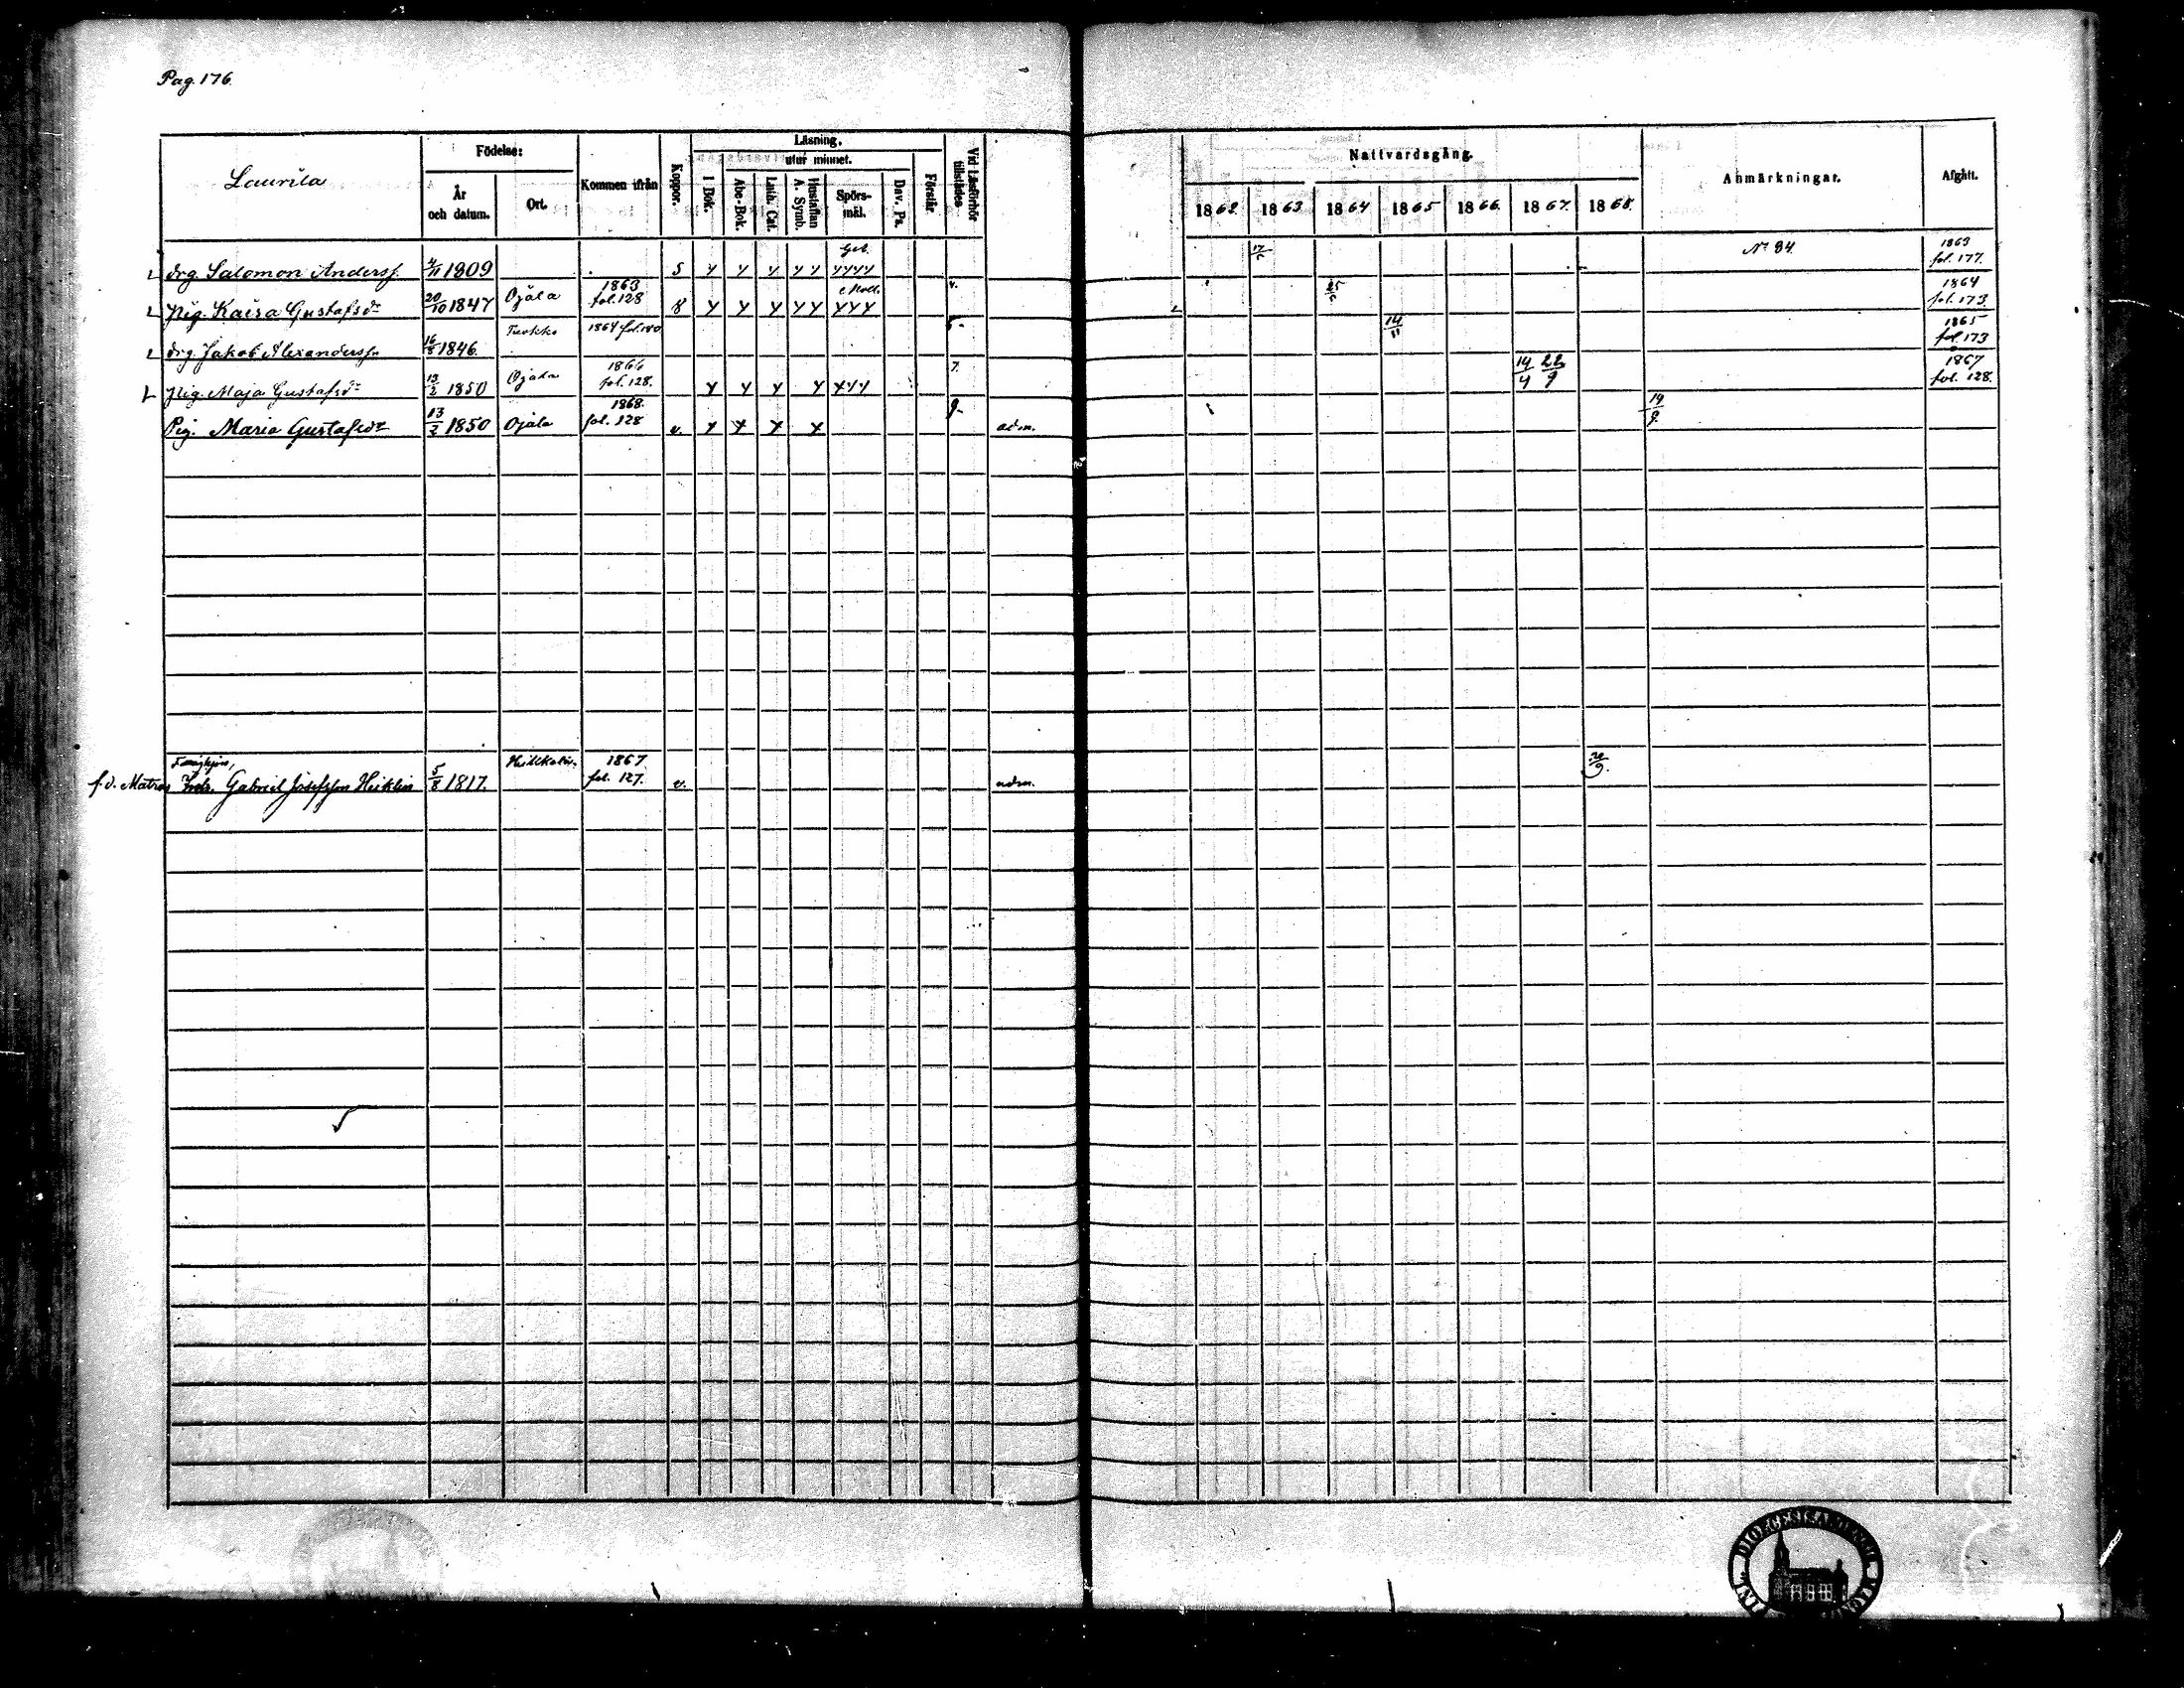 Pag. 176.
Laurila
Födelse:
År och datum.
Ort.
Kommen ifrån
Koppor.
Läsning,
utur minnet.
I Bok.
Abc-Bok.
Luth. Cat.
Hustaflan A. Symb.
Spörs-mål.
Dav. Ps.
Förstår.
Vid Läsförhör tillstädes
Nattvardsgång.
1862. 1863 1864 1865 1866. 1867. 1868.
Anmärkningar.
Afgått.
Drg. Salomon Anderss. 4/11 1809 5 Y Y Y Y Y YYYY 17/5 No 84. 1863 fol. 177.
Pig. Kaisa Gustafsdr 20/10 1847 Ojala 1863 fol. 128 8 Y Y Y Y Y YYY 25/5 1864 fol. 173
Drg. Jakob Alexanderss. 16/8 1846. 1864 fol. 140 14/11 1865 fol. 173
Pig. Maja Gustafsdr 13/2 1850 Ojala 1866 fol. 128. Y Y Y Y YYY 7. 14/4 22/9 1867 fol. 128.
Pig. Maria Gustafsdr 13/2 1850 Ojala 1868. fol. 128 v. Y Y Y Y 9. adm. 19/9.
f.d. Matros Gabriel Josefsson Heiklin 5/8 1817. 1867 fol. 127. v. adm.